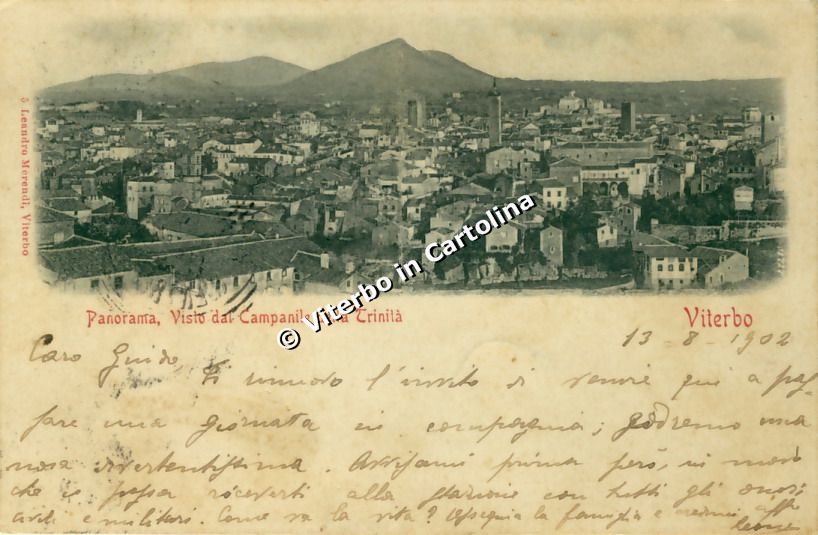 5 Leandro Merendi, Viterbo
© Viterbo in Cartolina
Panorama, Visto dal Campanile Trinità
Viterbo
13-8-1902
Caro Guido,
Ti rinnovo l'invito di venire qui a pas-
sare una giornata in compagnia; godremo una
noia divertentissima. Avvisami prima però, in modo
che io possa riceverti alla stazione con tutti gli onori
civili e militari. Come va la vita? Ossequia la famiglia e credimi aff